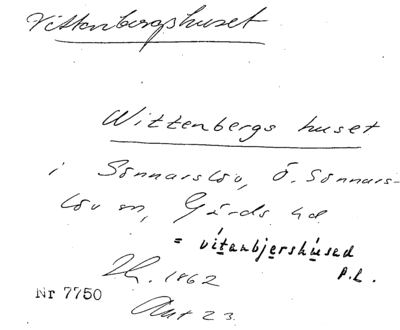 Vittenbergshuset
Wittenbergs huset
i Sönnarslöv, Ö. Sönnars-
löv sn, Gärds hd
= vítanbjershúsad
P.L.
1862
Nr 7750
Akt 23